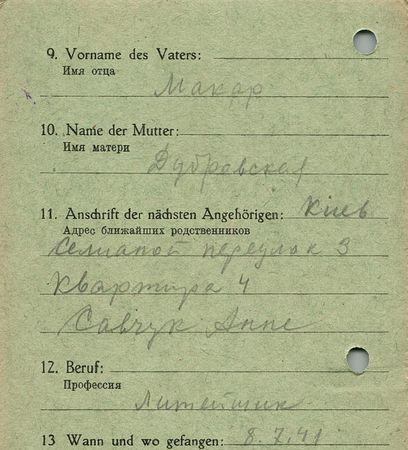 9. Vorname des Vaters:
Имя отца
Макар
10. Name der Mutter:
Имя матери
Дубровская
11. Anschrift der nächsten Angehörigen: Киев
Адрес ближайших родственников
переулок 3
квартира 4
Савчук Анне
12. Beruf:
Профессия
Литейщик
13 Wann und wo gefangen: 8.7.41